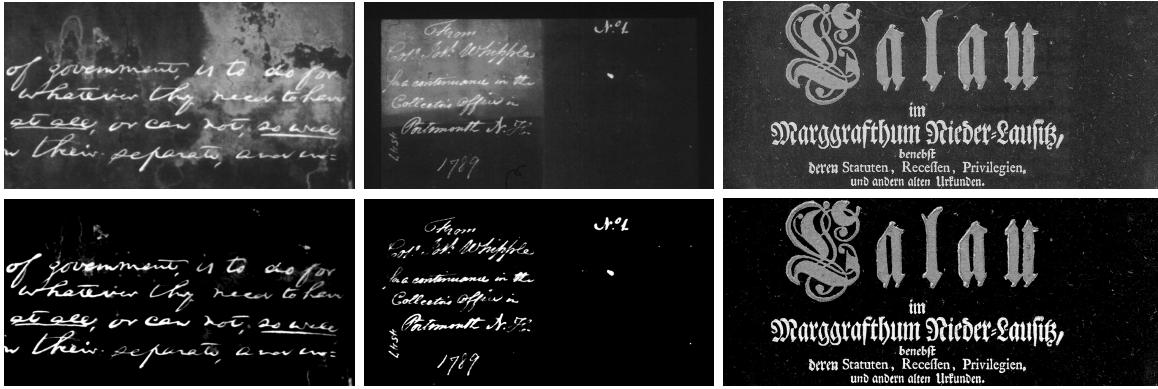 of government, is to do for
whatever they need to have
at all, or can not, so well
in their separate, and in=
From
Colo. Jos. Whipple
for a continuance in the
Collector's Office in
Portsmouth N. H.
1789
No. 1
Calau
im
Marggrafthum Nieder-Lausitz,
benebst
deren Statuten, Recessen, Privilegien,
und andern alten Urkunden.
of government, is to do for
whatever they need to have
at all, or can not, so well
in their separate, and in=
From
Colo. Jos. Whipple
for a continuance in the
Collector's Office in
Portsmouth N. H.
1789
No. 1
Calau
im
Marggrafthum Nieder-Lausitz,
benebst
deren Statuten, Recessen, Privilegien,
und andern alten Urkunden.